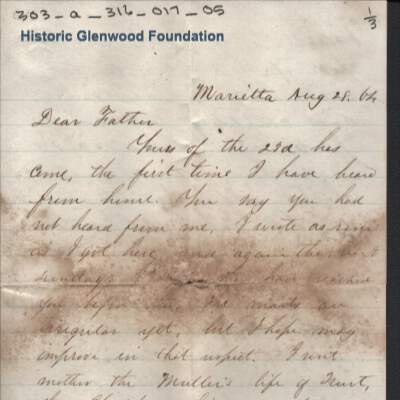 303_a_316_017_05
1/3
Historic Glenwood Foundation
Marietta Aug 28. 64
Dear Father
Yours of the 22d has
come, the first time I have heard
from home. You say you had
not heard from me, I wrote as soon
as I got here, and again the next
Sunday. have reached
you before The mails are
irregular yet, but I hope may
improve in that respect. I sent
mother the Muller's life of Trust,